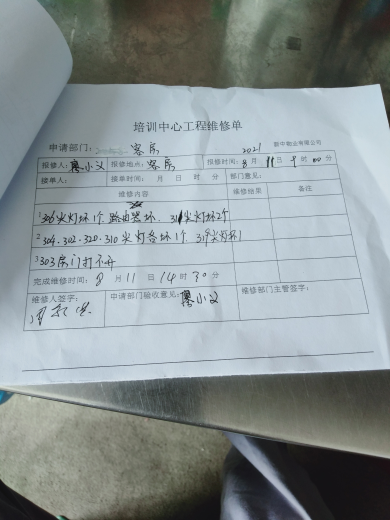 培训中心工程维修单
申请部门: 客房 2021 新中物业有限公司
报修人: 廖小义 报修地点: 客房 报修时间: 8月11日9时00分
接单人: 接单时间: 月 日 时 分 部门意见:
维修内容 维修结果 备注
1 306尖灯坏1个. 路由器坏. 311尖灯坏2个
2 304.302.320.310尖灯各坏1个. 319尖灯坏1
3 303房门打不开
完成维修时间: 8月11日14时30分
维修人签字: 申请部门验收意见: 廖小义 维修部门主管签字: